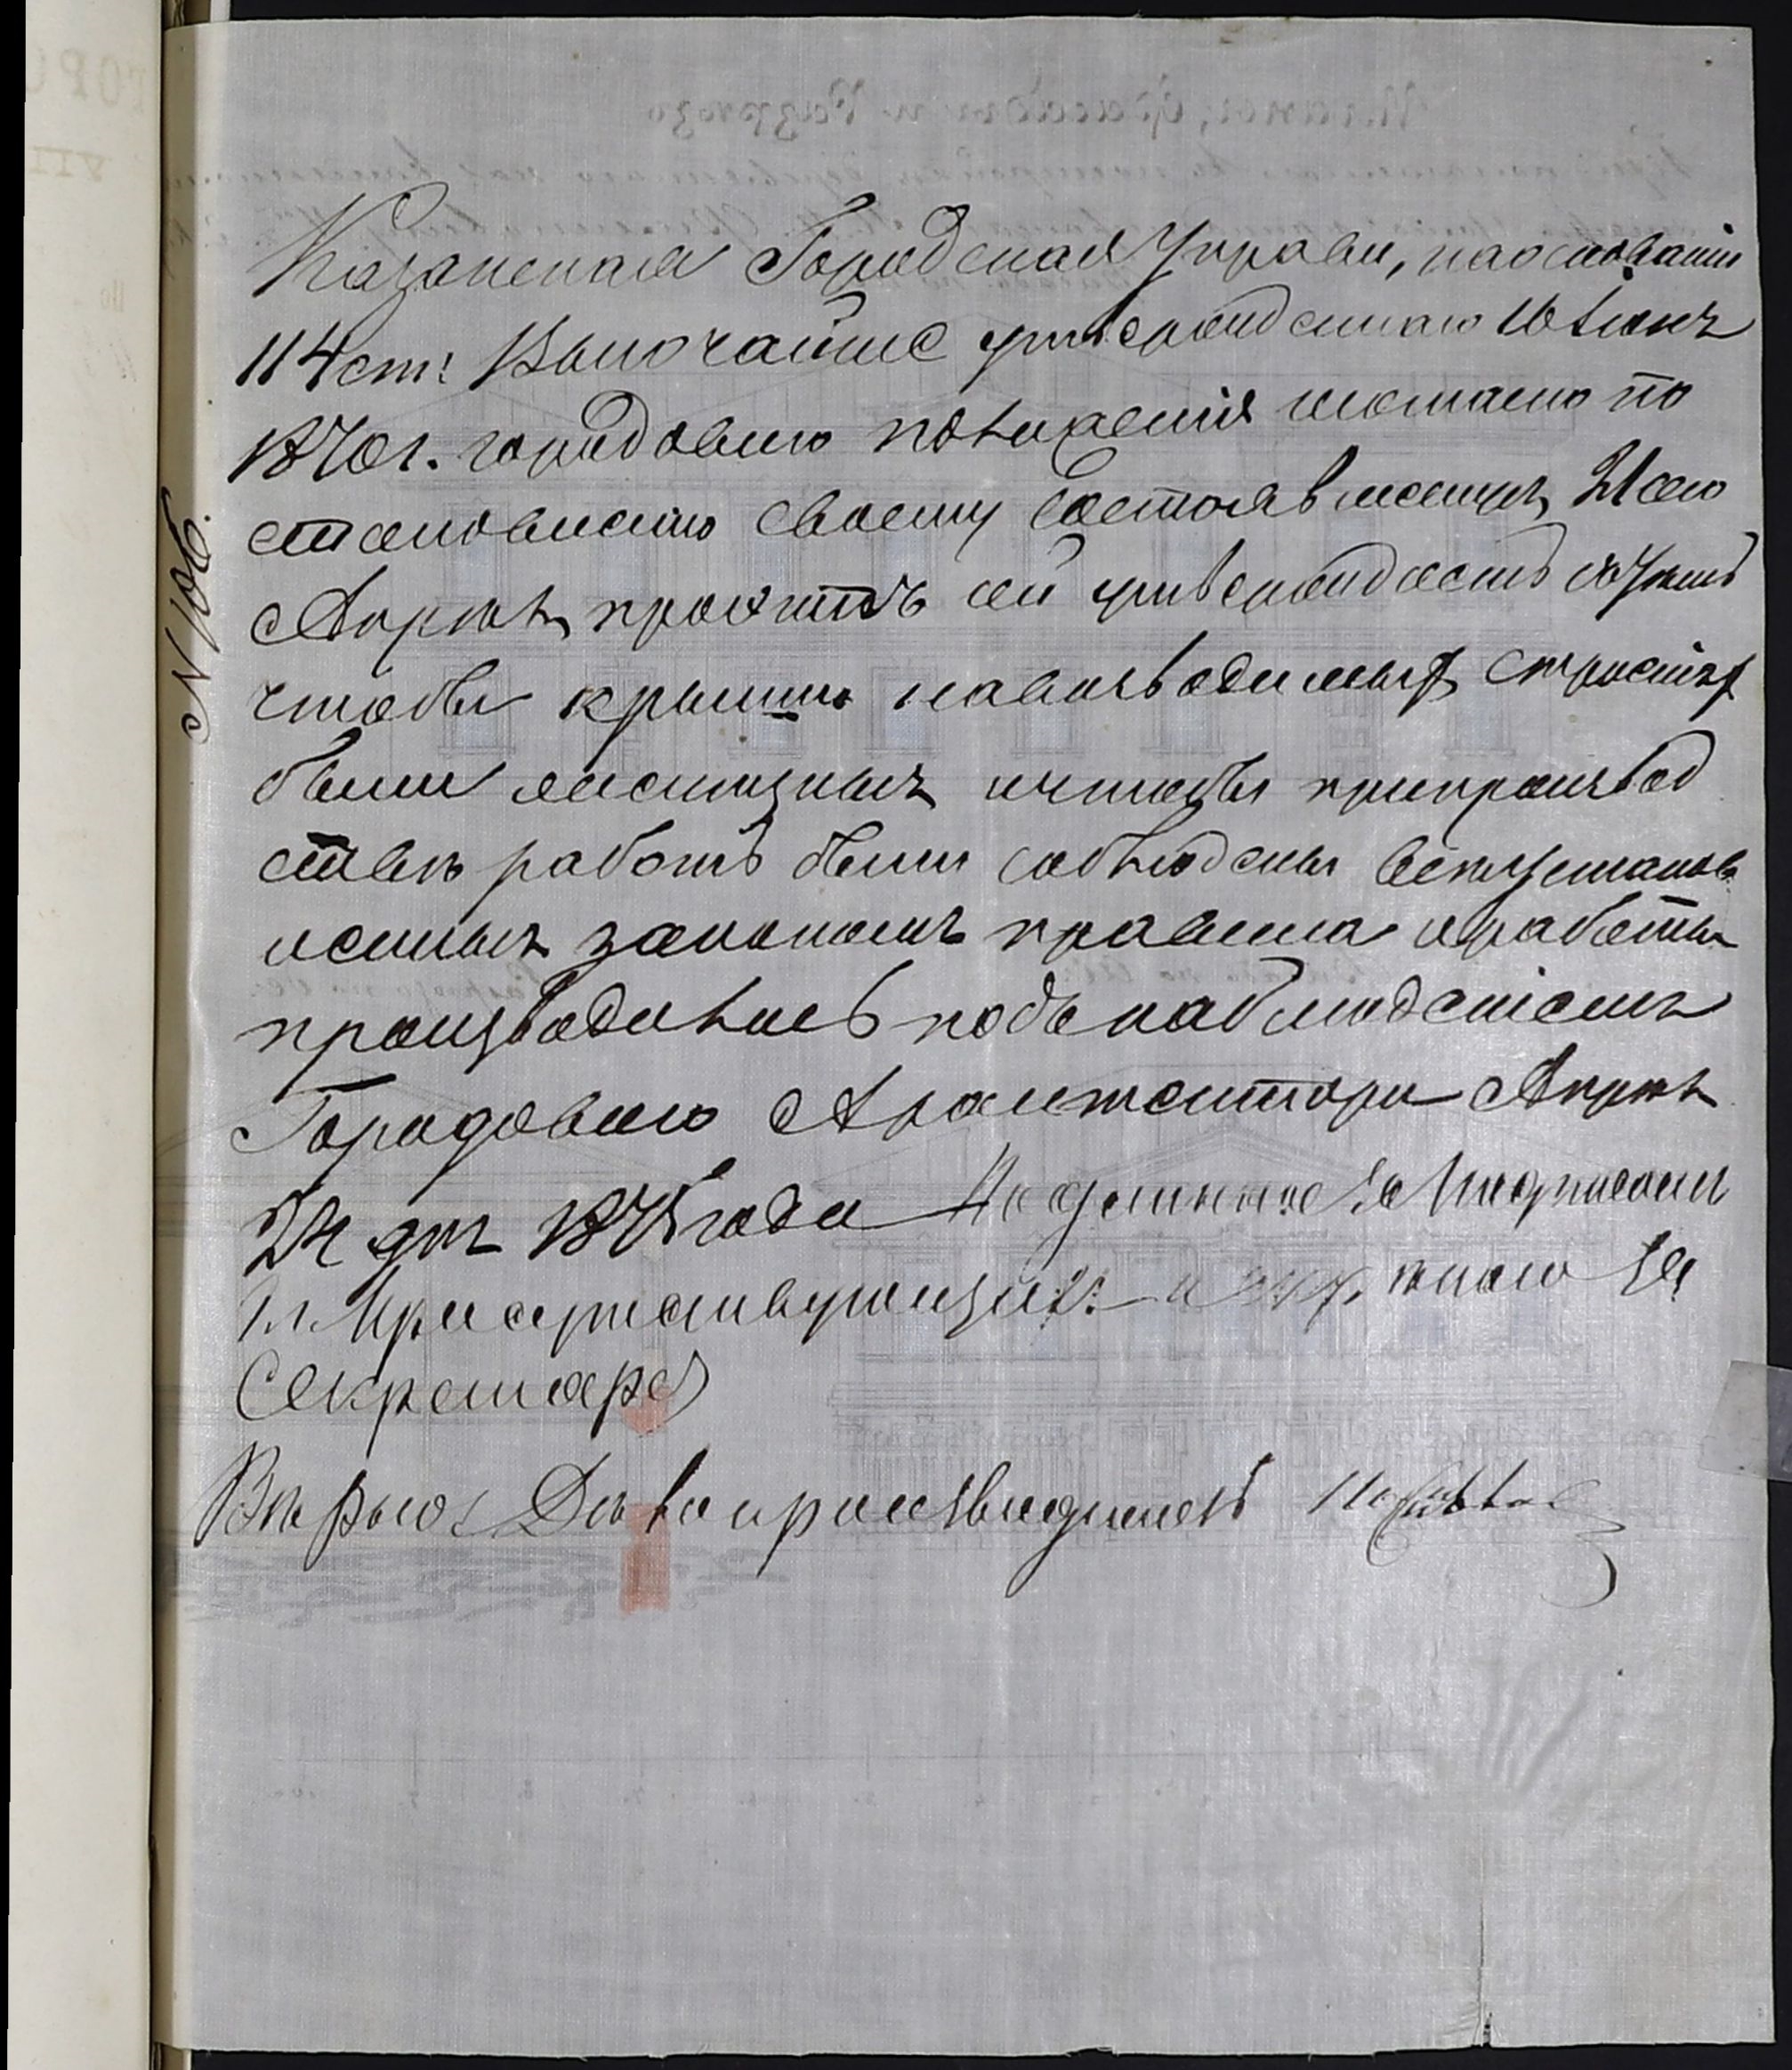 Казанская Городская Управа, на основаніи
114 ст: Высочайше утвержденнаго 16 Іюня
1870 г. городоваго положенія согласно по
становленію своему состоявшемуся 21 сего
Апрѣля, проэктъ сей утверждаетъ съ тѣмъ
чтобы крыши на возводимыхъ строеніяхъ
были и чтобы при производ
ствѣ работъ были соблюдены всѣ установ
ленныя закономъ правила и работы
производились подъ наблюденіемъ
Городоваго Архитектора Апрѣля
24 дня 1875 года Подлинное за подписомъ
Г.г. Присутствующихъ и за
Секретаря
Вѣрно: Дѣлопроизводитель
N 106.